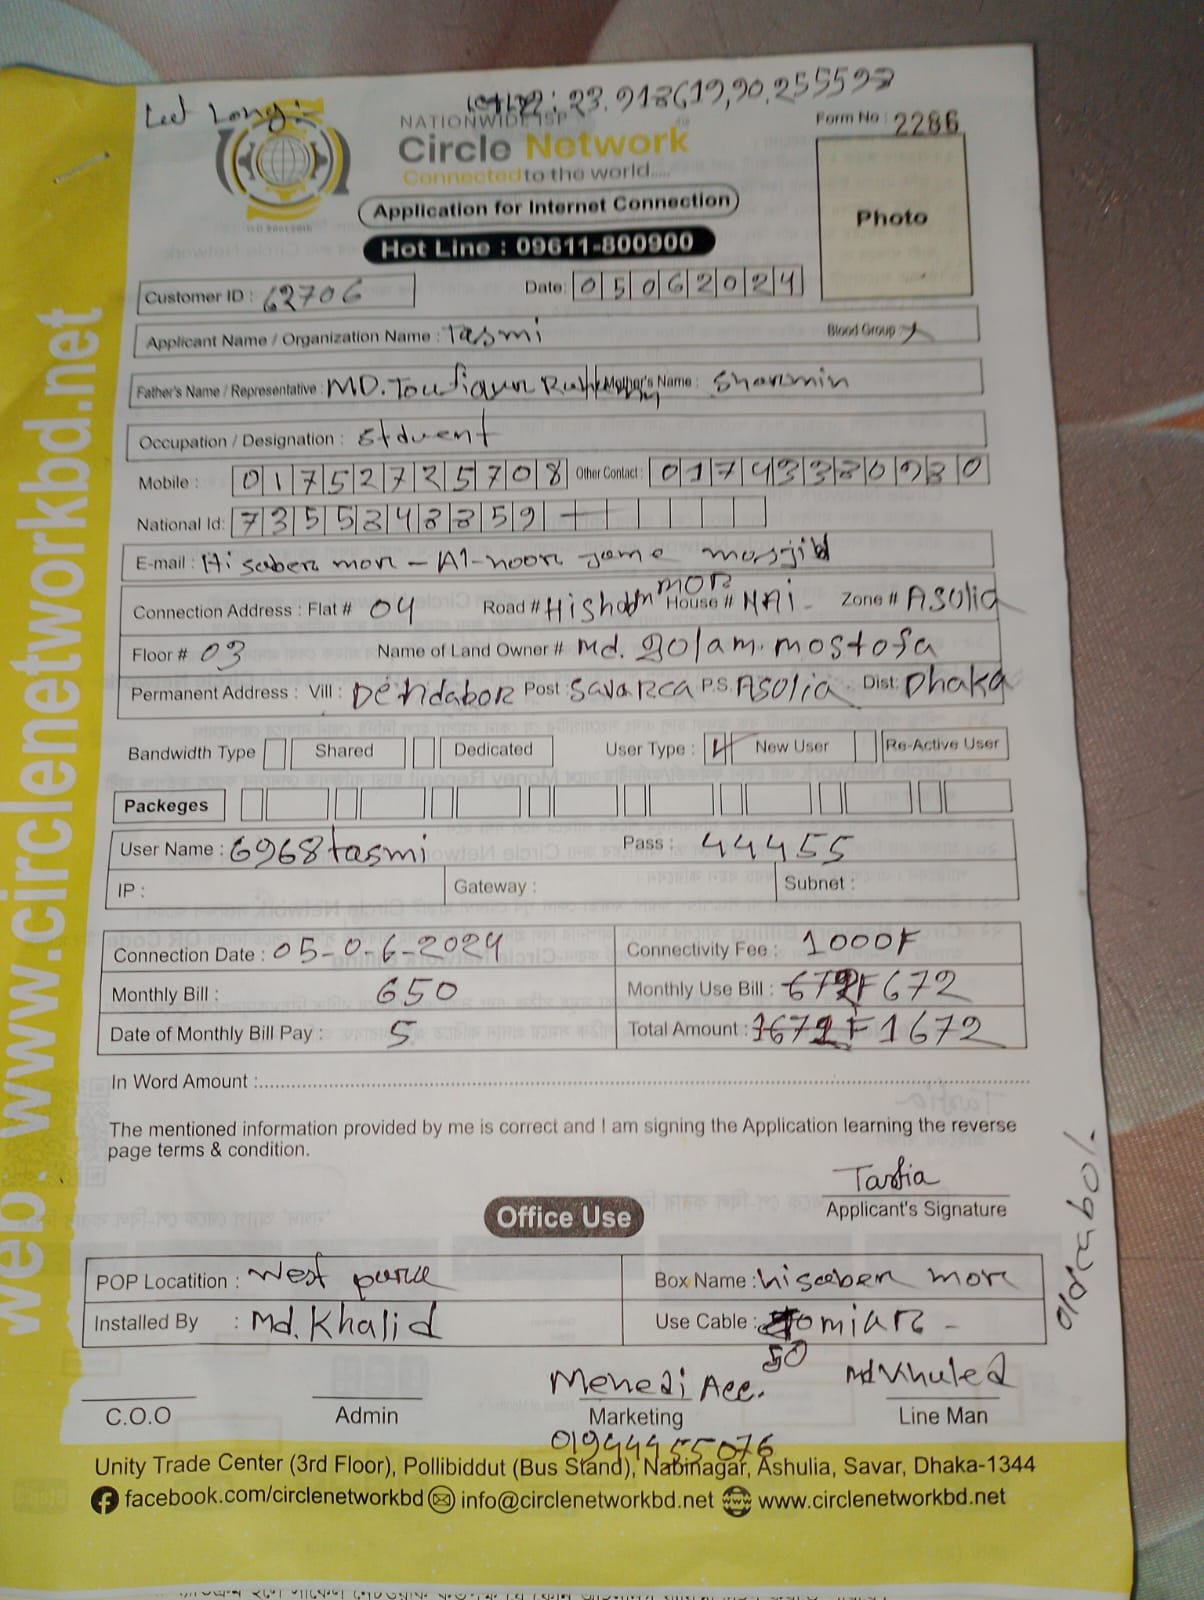 Let Long: 23.918619,90.255598
NATIONWIDE ISP
Form No : 2286
Circle Network
Connected to the world.....
Application for Internet Connection
Photo
Hot Line : 09611-800900
Customer ID : 62706
Date: 05062024
Applicant Name / Organization Name : Tasmi Blood Group :
Father's Name / Representative : MD. Toufiqur Mother's Name : Sharmin
Occupation / Designation : Stduent
Mobile : 01752725708 Other Contact : 01743380980
National Id: 7355848859
E-mail : Hisaber mor - Al-noor Jame mosjid
Connection Address : Flat # 04 Road # mor House # NAi Zone # ASOlia
Floor # 03 Name of Land Owner # Md. golam. mostofa
Permanent Address : Vill : Dendabor Post : Savar ca P.S. ASOlia Dist: Dhaka
Bandwidth Type Shared Dedicated User Type : New User Re-Active User
Packeges
User Name : 6968tasmi Pass : 44455
IP : Gateway : Subnet :
Connection Date : 05-0-6-2024 Connectivity Fee : 1000F
Monthly Bill : 650 Monthly Use Bill : 672
Date of Monthly Bill Pay : 5 Total Amount : 1672
In Word Amount :
The mentioned information provided by me is correct and I am signing the Application learning the reverse
page terms & condition.
Tasfia
Applicant's Signature
Office Use
POP Locatition : West Box Name : hisaber mor
Installed By : Md. Khalid Use Cable :
50
Mehedi Acc. Md Khaled
C.O.O Admin Marketing Line Man
01944455076
Unity Trade Center (3rd Floor), Pollibiddut (Bus Stand), Nabinagar, Ashulia, Savar, Dhaka-1344
facebook.com/circlenetworkbd info@circlenetworkbd.net www.circlenetworkbd.net
web : www.circlenetworkbd.net